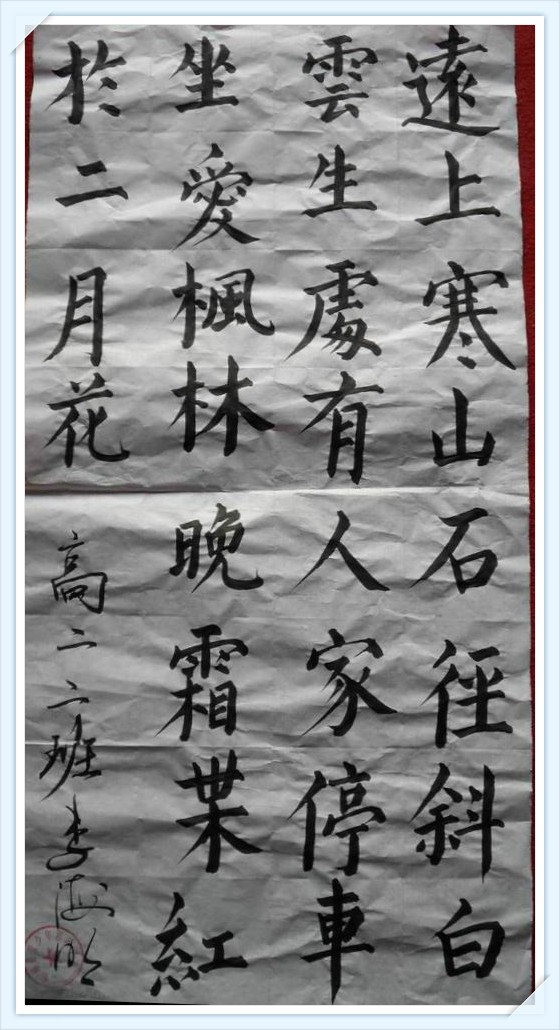 遠上寒山石徑斜白
雲生處有人家停車
坐愛楓林晚霜枼紅
於二月花
高二二班李海明